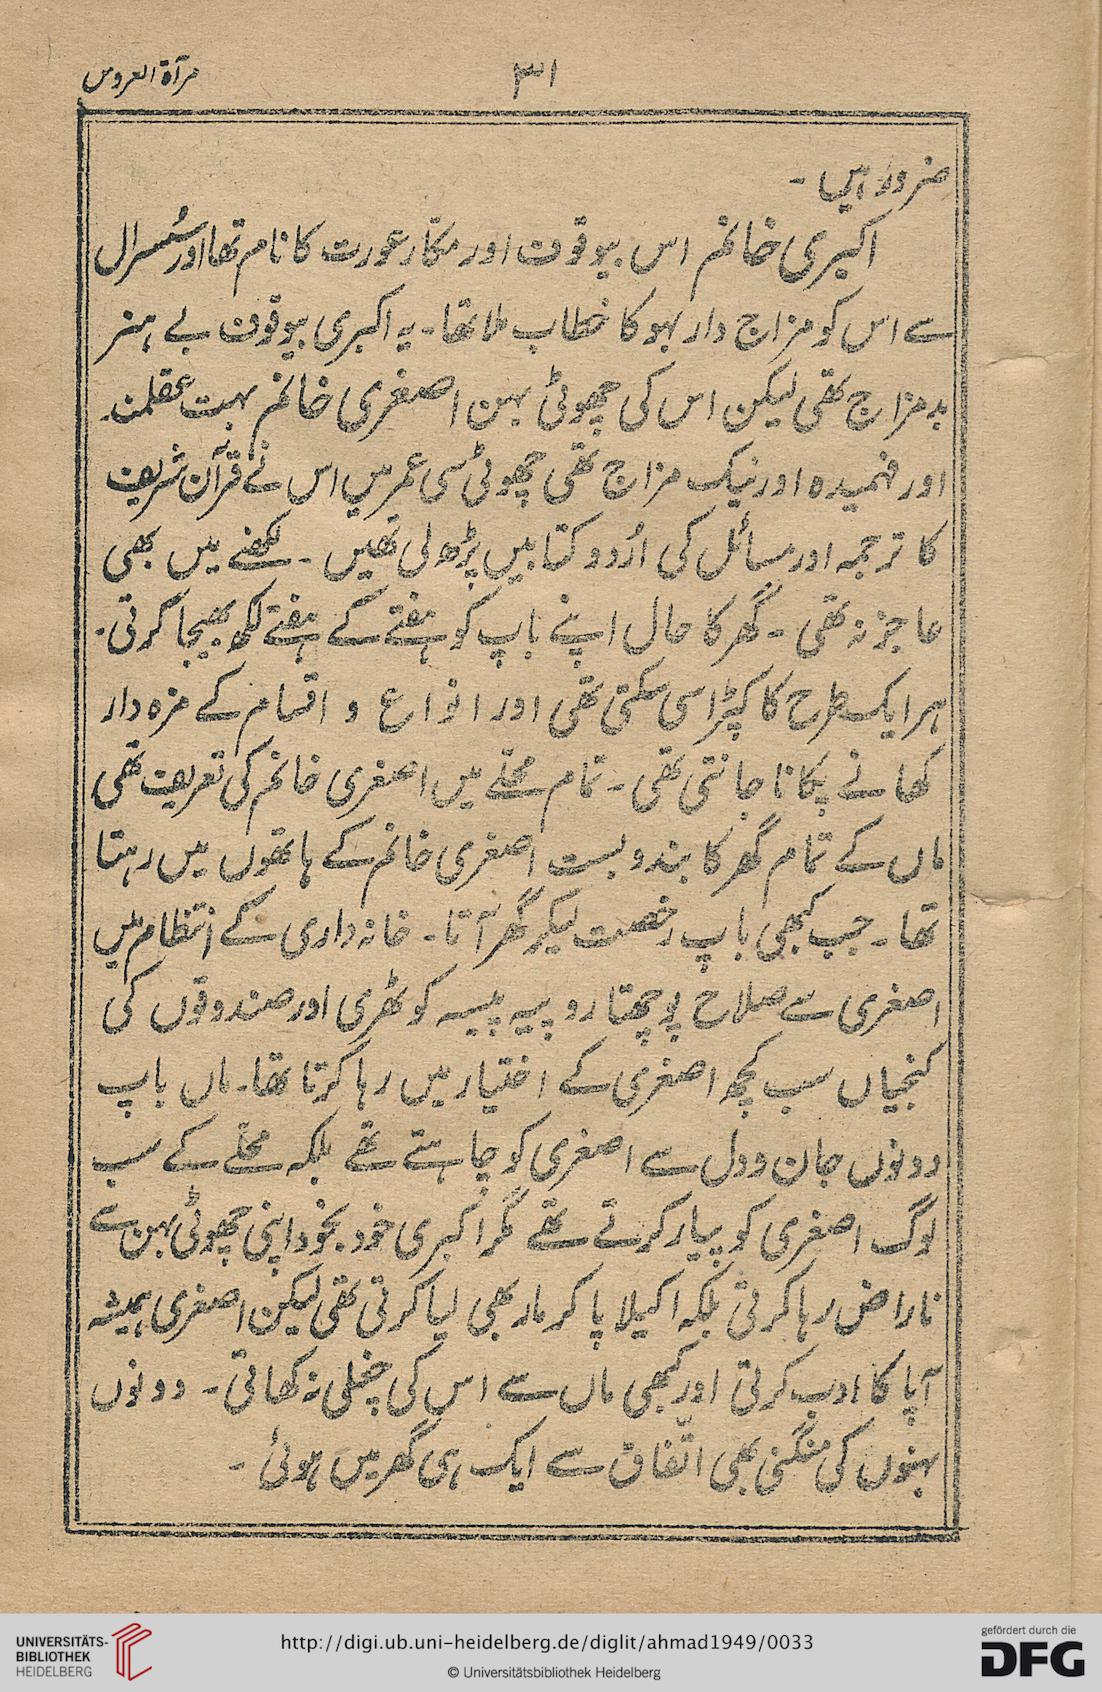 مرآۃ العروس
۳۱
ضرور ہیں -
اکبری خانم اس بیوقوف اور مکّار عورت کا نام تھا اور سُسرال
سے اس کو مزاج دار بہو کا خطاب ملا تھا - یہ اکبری بیوقوف بے ہنر
بدمزاج تھی لیکن اس کی چھوٹی بہن اصغری خانم بہت عقلمند
اور فہمیدہ اور نیک مزاج تھی چھوٹی سی عمر میں اس نے قرآن شریف
کا ترجمہ اور مسائل کی اُردو کتابیں پڑھ لی تھیں - لکھنے میں بھی
عاجز نہ تھی - گھر کا حال اپنے باپ کو ہفتے کے ہفتے لکھ بھیجا کرتی -
ہر ایک طرح کا کپڑا سی سکتی تھی اور انواع و اقسام کے مزہ دار
کھانے پکانا جانتی تھی - تمام محلّے میں اصغری خانم کی تعریف تھی
ماں کے تمام گھر کا بندوبست اصغری خانم کے ہاتھوں میں رہتا
تھا - جب کبھی باپ رخصت لیکر گھر آتا - خانہ داری کے انتظام میں
اصغری سے صلاح پوچھتا روپیہ پیسہ کوٹھری اور صندوقوں کی
کنجیاں سب کچھ اصغری کے اختیار میں رہا کرتا تھا - ماں باپ
دونوں جان و دل سے اصغری کو چاہتے تھے بلکہ محلّے کے سب
لوگ اصغری کو پیار کرتے تھے مگر اکبری خود بخود اپنی چھوٹی بہن سے
ناراض رہا کرتی بلکہ اکیلا پا کر مار بھی لیا کرتی تھی لیکن اصغری ہمیشہ
آپا کا ادب کرتی اور کبھی ماں سے اس کی چغلی نہ کھاتی - دونوں
بہنوں کی منگنی بھی اتّفاق سے ایک ہی گھر میں ہوئی -
UNIVERSITÄTS-
BIBLIOTHEK
HEIDELBERG
http://digi.ub.uni-heidelberg.de/diglit/ahmad1949/0033
© Universitätsbibliothek Heidelberg
gefördert durch die
DFG